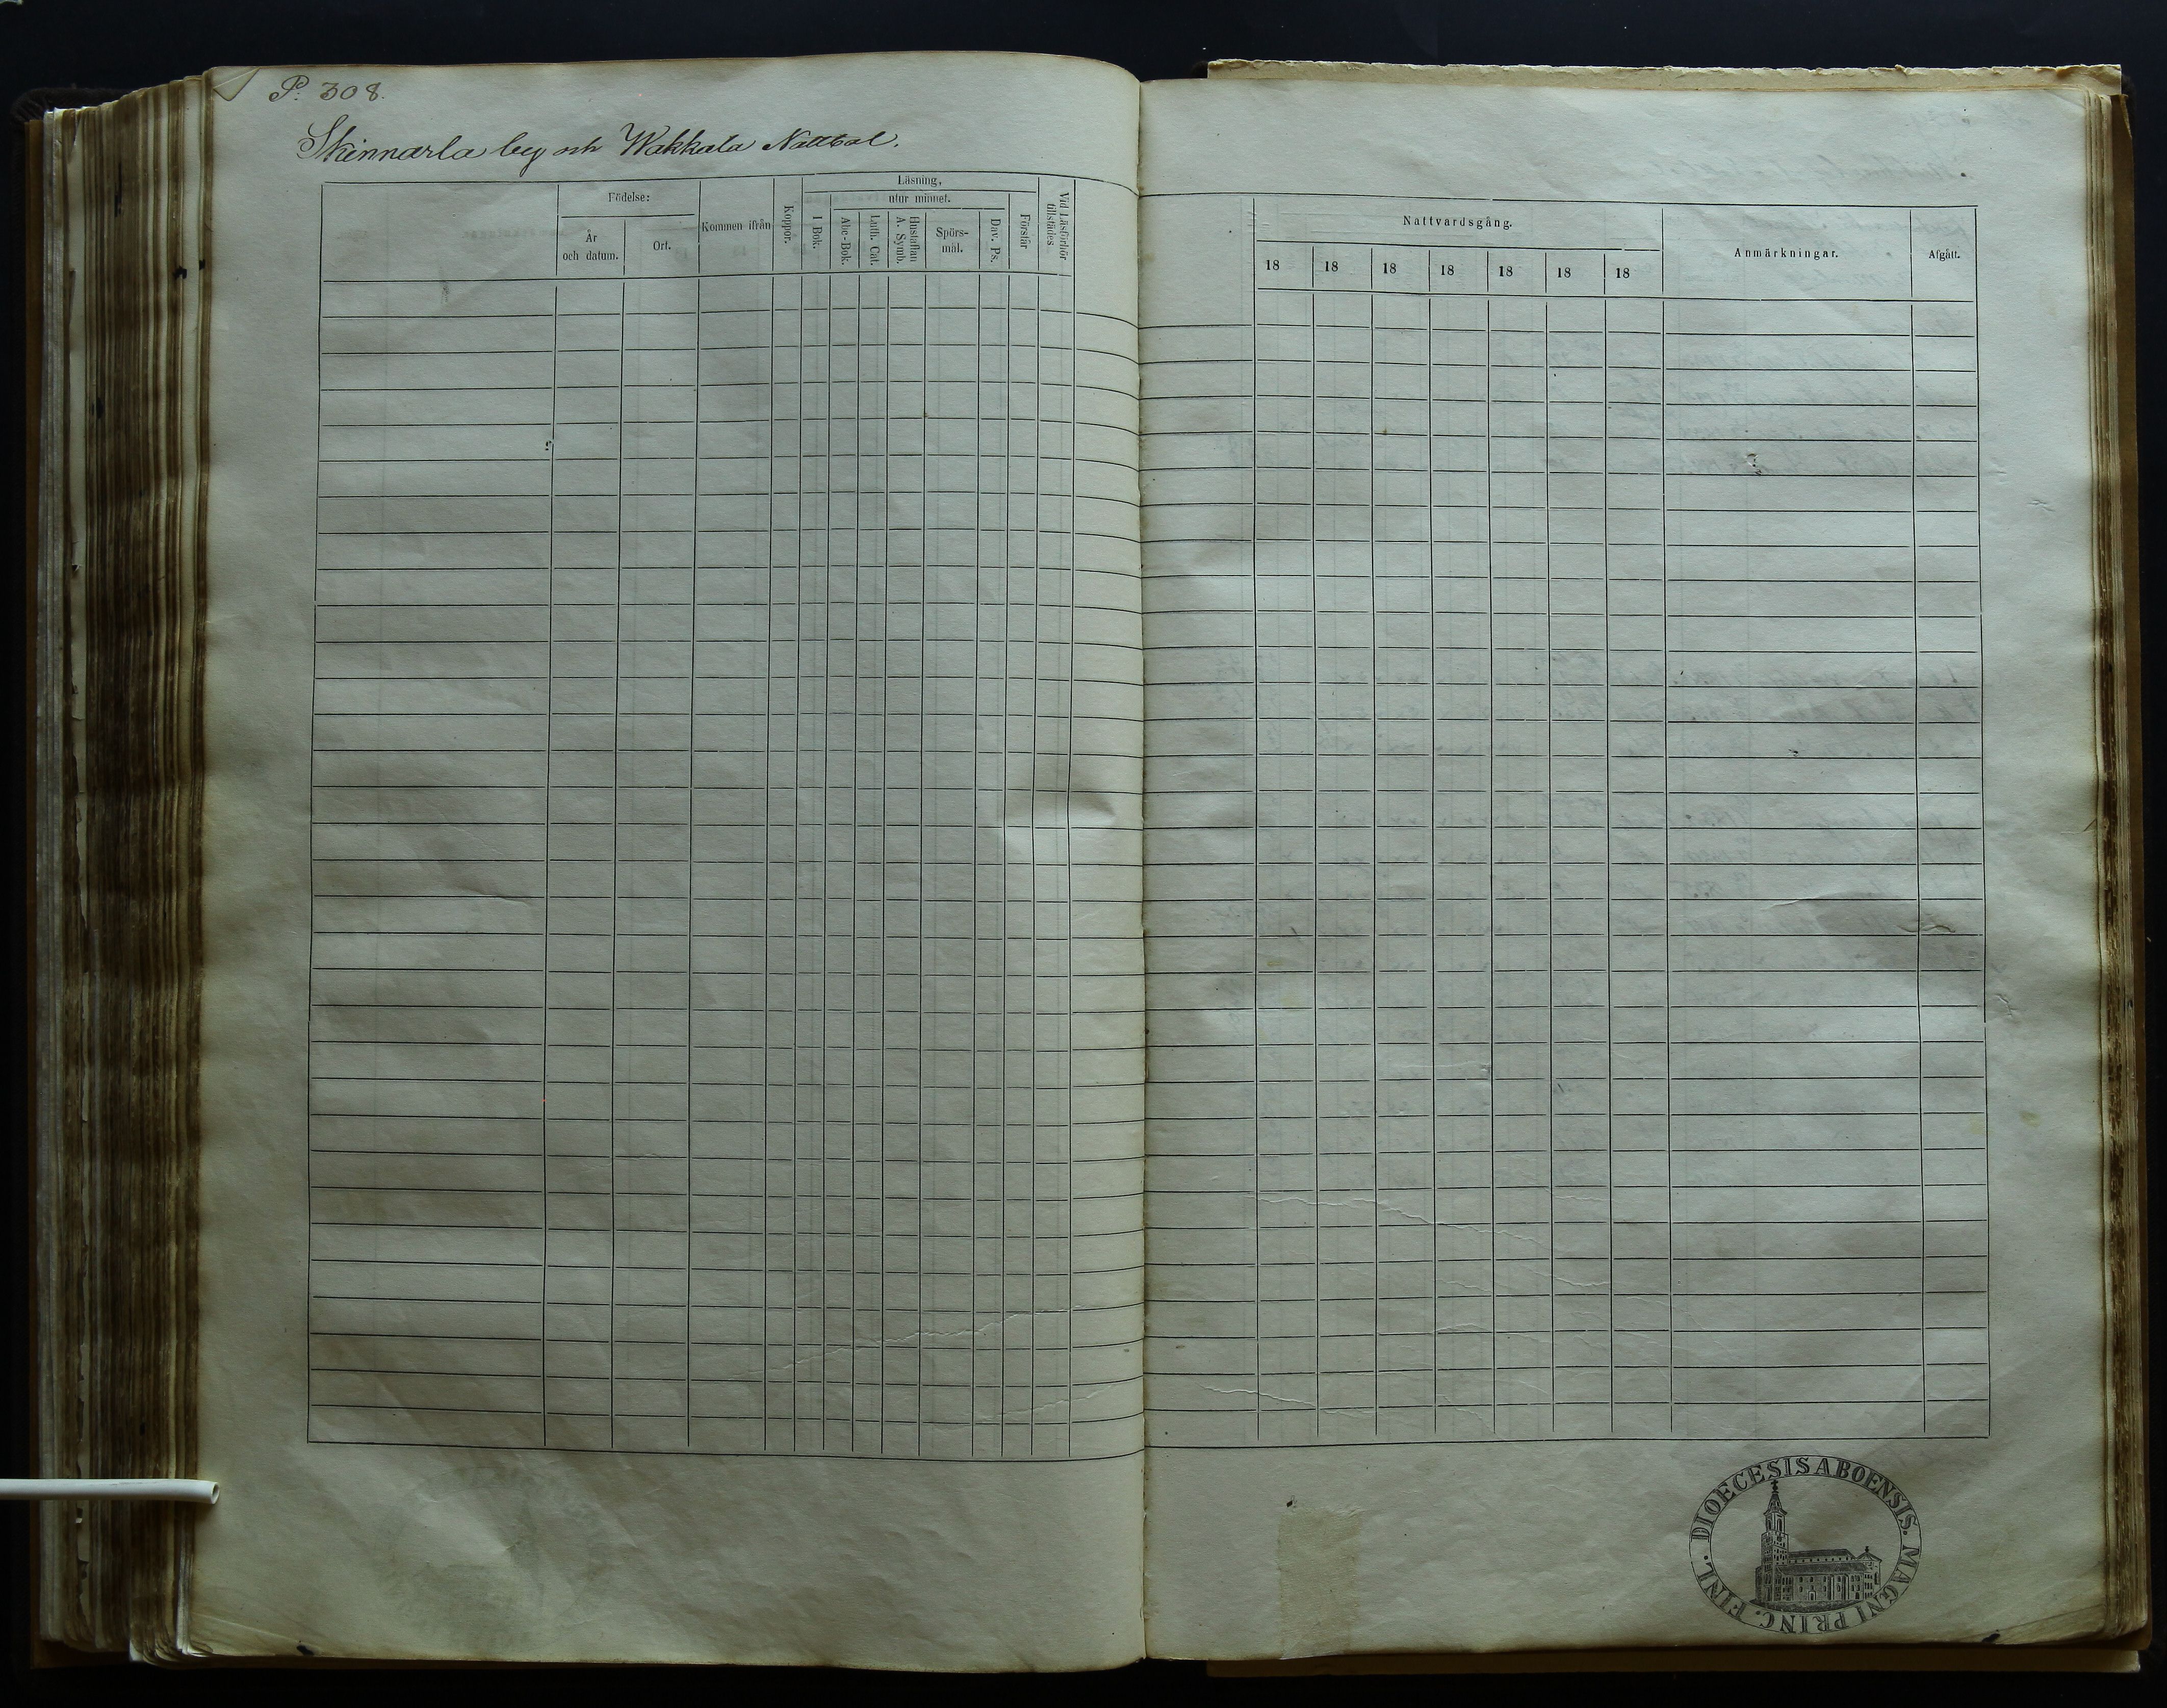 P. 308.
Skinnarla by och Wakkala Rusthåll.
Födelse:
År och datum.
Ort.
Kommen ifrån
Koppor.
Läsning,
utur minnet.
I Bok.
Abc-Bok.
Luth. Cat.
Hustaflan A. Symb.
Spörsmål.
Dav. Ps.
Förstår
Vid Läsförhör tillstädes
Nattvardsgång.
18 18 18 18 18 18 18
Anmärkningar.
Afgått.
DIOECESIS ABOENSIS. MAGNI PRINC. FINL.